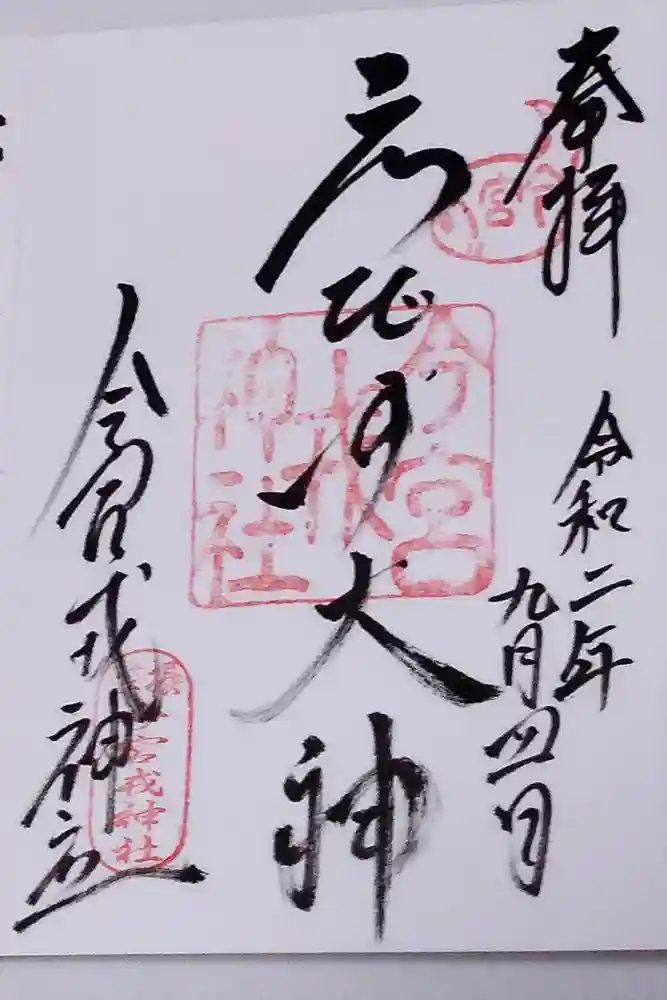 奉拝
令和二年
九月四日
えびす大神
今宮戎神社
今宮
今宮戎神社
今宮戎神社